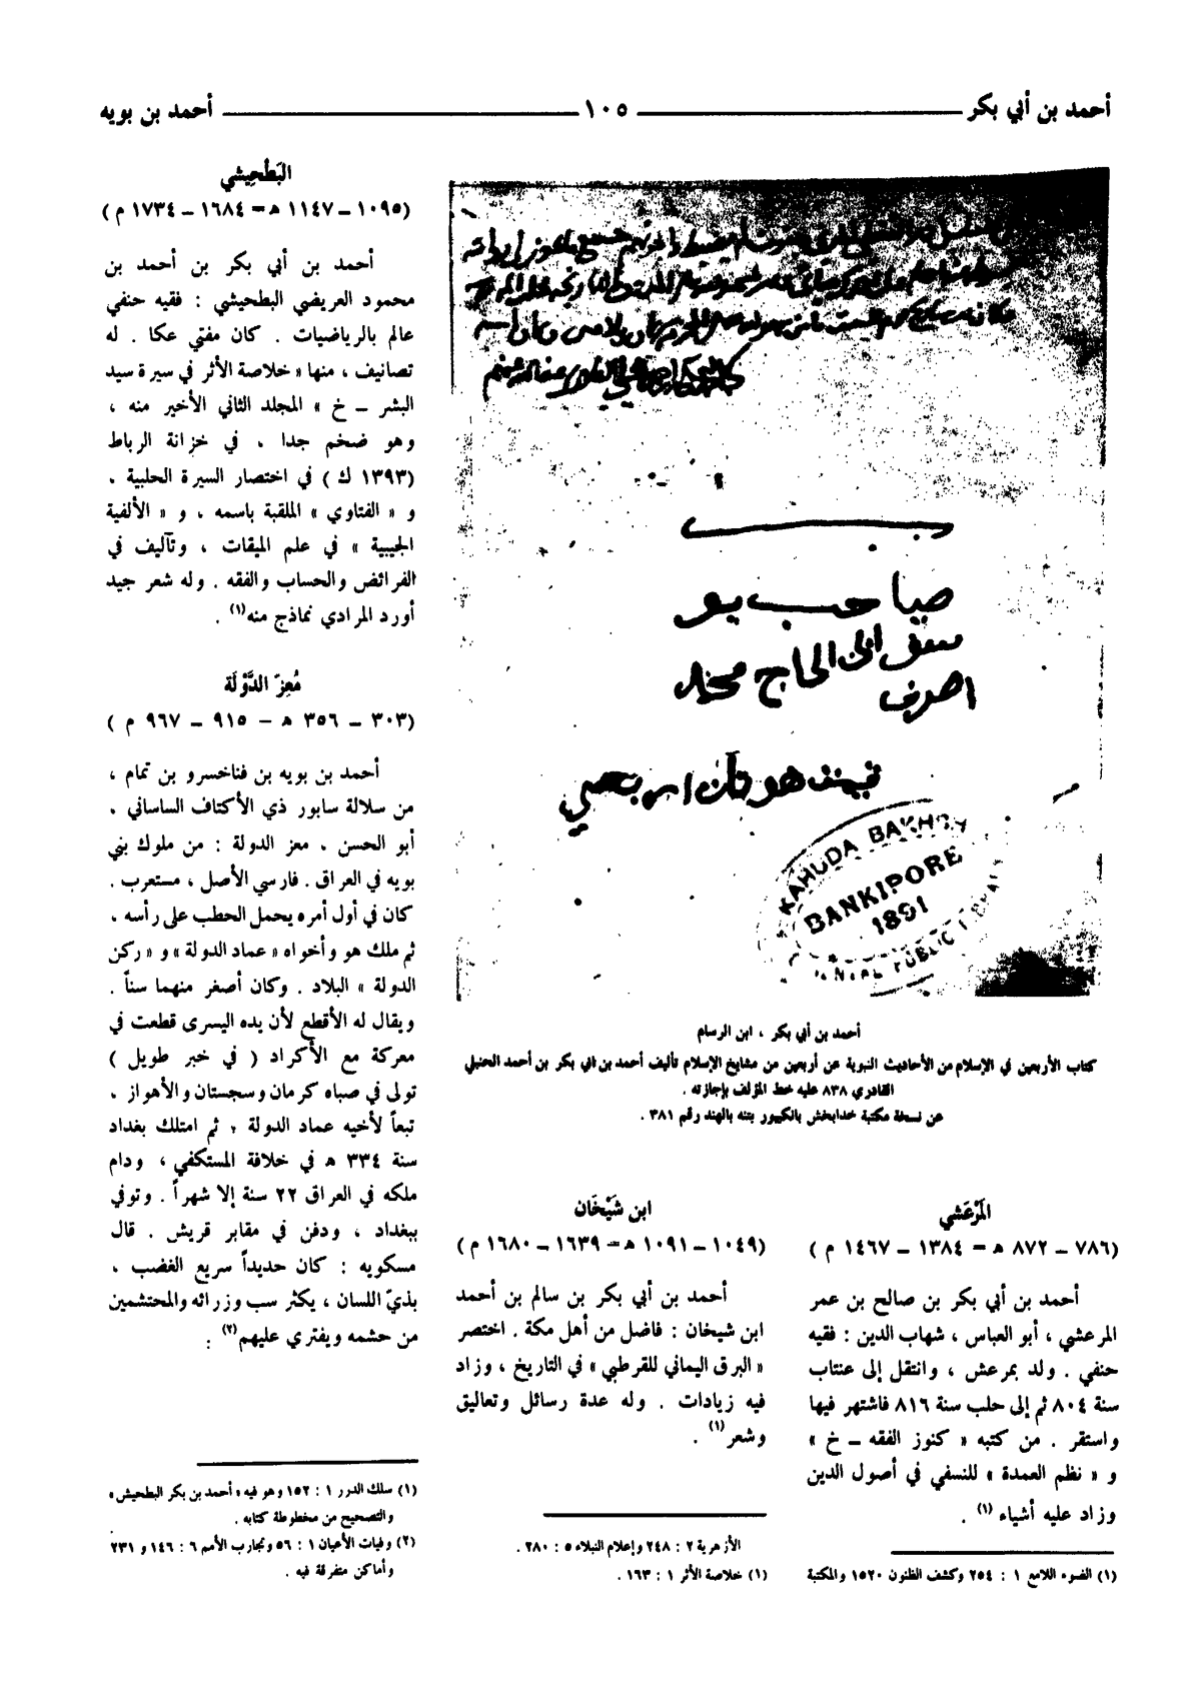 أحمد بن أبي بكر ـــ ١٠٥ ـــ أحمد بن بويه
صاحب
الحاج محمد
BANKIPORE
1891
أحمد بن أبي بكر ، ابن الرسام
كتاب الأربعين في الإسلام من الأحاديث النبوية عن أربعين من مشايخ الإسلام تأليف أحمد بن أبي بكر بن أحمد الحنبلي
القادري ٨٣٨ عليه خط المؤلف بإجازته .
عن نسخة مكتبة خدابخش بانكيبور بتنه بالهند رقم ٣٨١ .
المَرْعَشي
(٧٨٦ – ٨٧٢ ه = ١٣٨٤ – ١٤٦٧ م)
أحمد بن أبي بكر بن صالح بن عمر
المرعشي ، أبو العباس ، شهاب الدين : فقيه
حنفي . ولد بمرعش ، وانتقل إلى عنتاب
سنة ٨٠٤ ثم إلى حلب سنة ٨١٦ فاشتهر فيها
واستقر . من كتبه « كنوز الفقه – خ »
و « نظم العمدة » للنسفي في أصول الدين
وزاد عليه أشياء (١) .
(١) الضوء اللامع ١ : ٢٥٤ وكشف الظنون ١٥٢٠ والمكتبة
ابن شَيْخَان
(١٠٤٩ – ١٠٩١ ه = ١٦٣٩ – ١٦٨٠ م)
أحمد بن أبي بكر بن سالم بن أحمد
ابن شيخان : فاضل من أهل مكة . اختصر
« البرق اليماني للقرطبي » في التاريخ ، وزاد
فيه زيادات . وله عدة رسائل وتعاليق
وشعر (١) .
الأزهرية ٢ : ٢٤٨ وإعلام النبلاء ٥ : ٢٨٠ .
(١) خلاصة الأثر ١ : ١٦٣ .
البَطْحِيشي
(١٠٩٥ – ١١٤٧ ه = ١٦٨٤ – ١٧٣٤ م)
أحمد بن أبي بكر بن أحمد بن
محمود العريضي البطحيشي : فقيه حنفي
عالم بالرياضيات . كان مفتي عكا . له
تصانيف ، منها « خلاصة الأثر في سيرة سيد
البشر – خ » المجلد الثاني الأخير منه ،
وهو ضخم جدا ، في خزانة الرباط
(١٣٩٣ ك) في اختصار السيرة الحلبية .
و « الفتاوي » الملقبة باسمه ، و « الألفية
الجيبية » في علم الميقات ، وتآليف في
الفرائض والحساب والفقه . وله شعر جيد
أورد المرادي نماذج منه (١) .
مُعِزّ الدَّوْلَة
(٣٠٣ – ٣٥٦ ه – ٩١٥ – ٩٦٧ م)
أحمد بن بويه بن فناخسرو بن تمام ،
من سلالة سابور ذي الأكتاف الساساني ،
أبو الحسن ، معز الدولة : من ملوك بني
بويه في العراق . فارسي الأصل ، مستعرب .
كان في أول أمره يحمل الحطب على رأسه ،
ثم ملك هو وأخواه « عماد الدولة » و « ركن
الدولة » البلاد . وكان أصغر منهما سناً .
ويقال له الأقطع لأن يده اليسرى قطعت في
معركة مع الأكراد ( في خبر طويل )
تولى في صباه كرمان وسجستان والأهواز ،
تبعاً لأخيه عماد الدولة ؛ ثم امتلك بغداد
سنة ٣٣٤ ه في خلافة المستكفي ، ودام
ملكه في العراق ٢٢ سنة إلا شهراً . وتوفي
ببغداد ، ودفن في مقابر قريش . قال
مسكويه : كان حديداً سريع الغضب ،
بذيّ اللسان ، يكثر سب وزرائه والمحتشمين
من حشمه ويفتري عليهم (٢) :
(١) سلك الدرر ١ : ١٥٢ وهو فيه « أحمد بن بكر البطحيش »
والتصحيح من مخطوطة كتابه .
(٢) وفيات الأعيان ١ : ٥٦ وتجارب الأمم ٦ : ١٤٦ و ٢٣١
وأماكن متفرقة فيه .